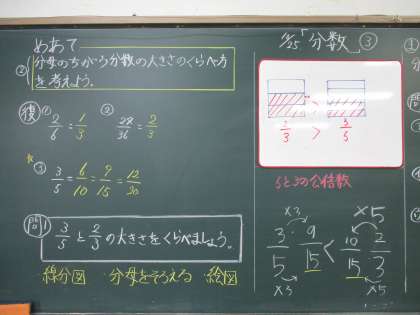 めあて
② 分母のちがう分数の大きさのくらべ方
を考えよう。
復 ① 2/6 = 1/3 ② 28/36 = 2/3
③ 3/5 = 6/10 = 9/15 = 12/20
問1 3/5 と 2/3 の大きさをくらべましょう。
線分図 分母をそろえる 絵図
/25 「分数」 ③
2/3 > 3/5
5と3の公倍数
×3 ×5
3/5 9/15 < 10/15 2/3
×3 ×5
①
問